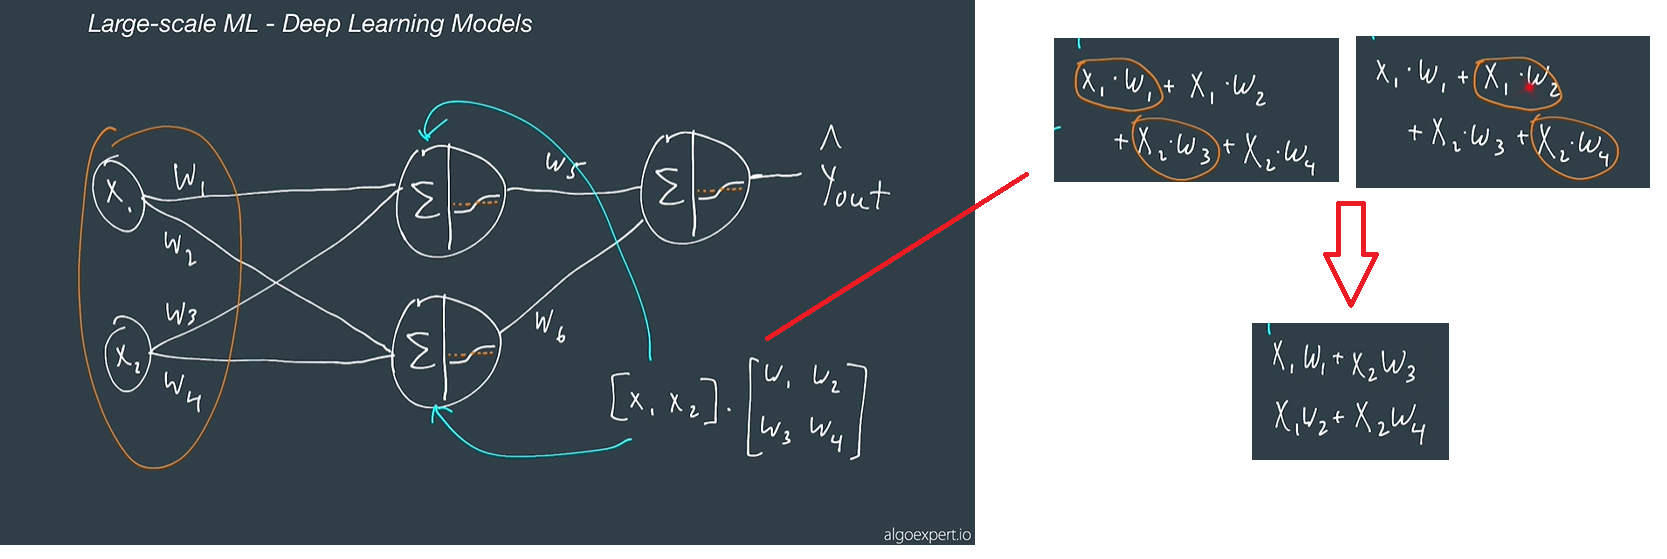 Large-scale ML - Deep Learning Models
X₁
W₁
W₂
W₃
X₂
W₄
Σ
Σ
W₅
W₆
Σ
^
Yout
[X₁ X₂] · [W₁ W₂
W₃ W₄]
algoexpert.io
X₁·W₁ + X₁·W₂
+ X₂·W₃ + X₂·W₄
X₁·W₁ + X₁·W₂
+ X₂·W₃ + X₂·W₄
X₁W₁ + X₂W₃
X₁W₂ + X₂W₄